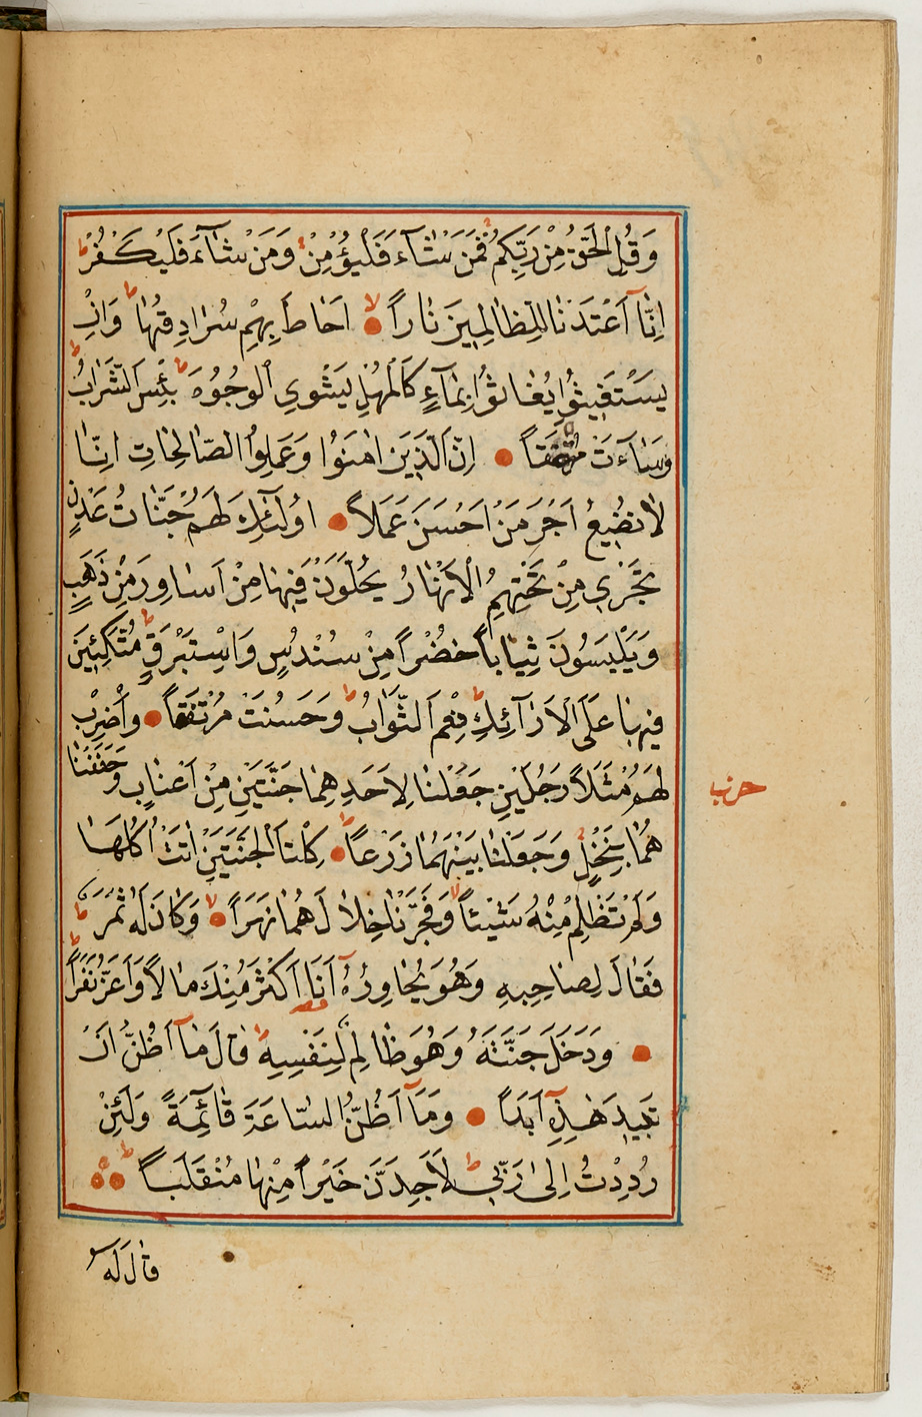 وَقُلِ الْحَقُّ مِنْ رَبِّكُمْ فَمَنْ شَآءَ فَلْيُؤْمِنْ وَمَنْ شَآءَ فَلْيَكْفُرْ
اِنَّآ اَعْتَدْنَا لِلظَّالِمِينَ نَارًا اَحَاطَ بِهِمْ سُرَادِقُهَا وَاِنْ
يَسْتَغِيثُوا يُغَاثُوا بِمَآءٍ كَالْمُهْلِ يَشْوِي الْوُجُوهَ بِئْسَ الشَّرَابُ
وَسَآءَتْ مُرْتَفَقًا اِنَّ الَّذِينَ اٰمَنُوا وَعَمِلُوا الصَّالِحَاتِ اِنَّا
لَا نُضِيعُ اَجْرَ مَنْ اَحْسَنَ عَمَلًا اُولٰٓئِكَ لَهُمْ جَنَّاتُ عَدْنٍ
تَجْرِي مِنْ تَحْتِهِمُ الْاَنْهَارُ يُحَلَّوْنَ فِيهَا مِنْ اَسَاوِرَ مِنْ ذَهَبٍ
وَيَلْبَسُونَ ثِيَابًا خُضْرًا مِنْ سُنْدُسٍ وَاِسْتَبْرَقٍ مُتَّكِئِينَ
فِيهَا عَلَى الْاَرَآئِكِ نِعْمَ الثَّوَابُ وَحَسُنَتْ مُرْتَفَقًا وَاضْرِبْ
لَهُمْ مَثَلًا رَجُلَيْنِ جَعَلْنَا لِاَحَدِهِمَا جَنَّتَيْنِ مِنْ اَعْنَابٍ وَحَفَفْنَا
حزب
هُمَا بِنَخْلٍ وَجَعَلْنَا بَيْنَهُمَا زَرْعًا كِلْتَا الْجَنَّتَيْنِ اٰتَتْ اُكُلَهَا
وَلَمْ تَظْلِمْ مِنْهُ شَيْئًا وَفَجَّرْنَا خِلَالَهُمَا نَهَرًا وَكَانَ لَهُ ثَمَرٌ
فَقَالَ لِصَاحِبِهِ وَهُوَ يُحَاوِرُهُ اَنَا اَكْثَرُ مِنْكَ مَالًا وَاَعَزُّ نَفَرًا
وَدَخَلَ جَنَّتَهُ وَهُوَ ظَالِمٌ لِنَفْسِهِ قَالَ مَآ اَظُنُّ اَنْ
تَبِيدَ هٰذِهِ اَبَدًا وَمَآ اَظُنُّ السَّاعَةَ قَآئِمَةً وَلَئِنْ
رُدِدْتُ اِلٰى رَبِّي لَاَجِدَنَّ خَيْرًا مِنْهَا مُنْقَلَبًا
قَالَ لَهُ